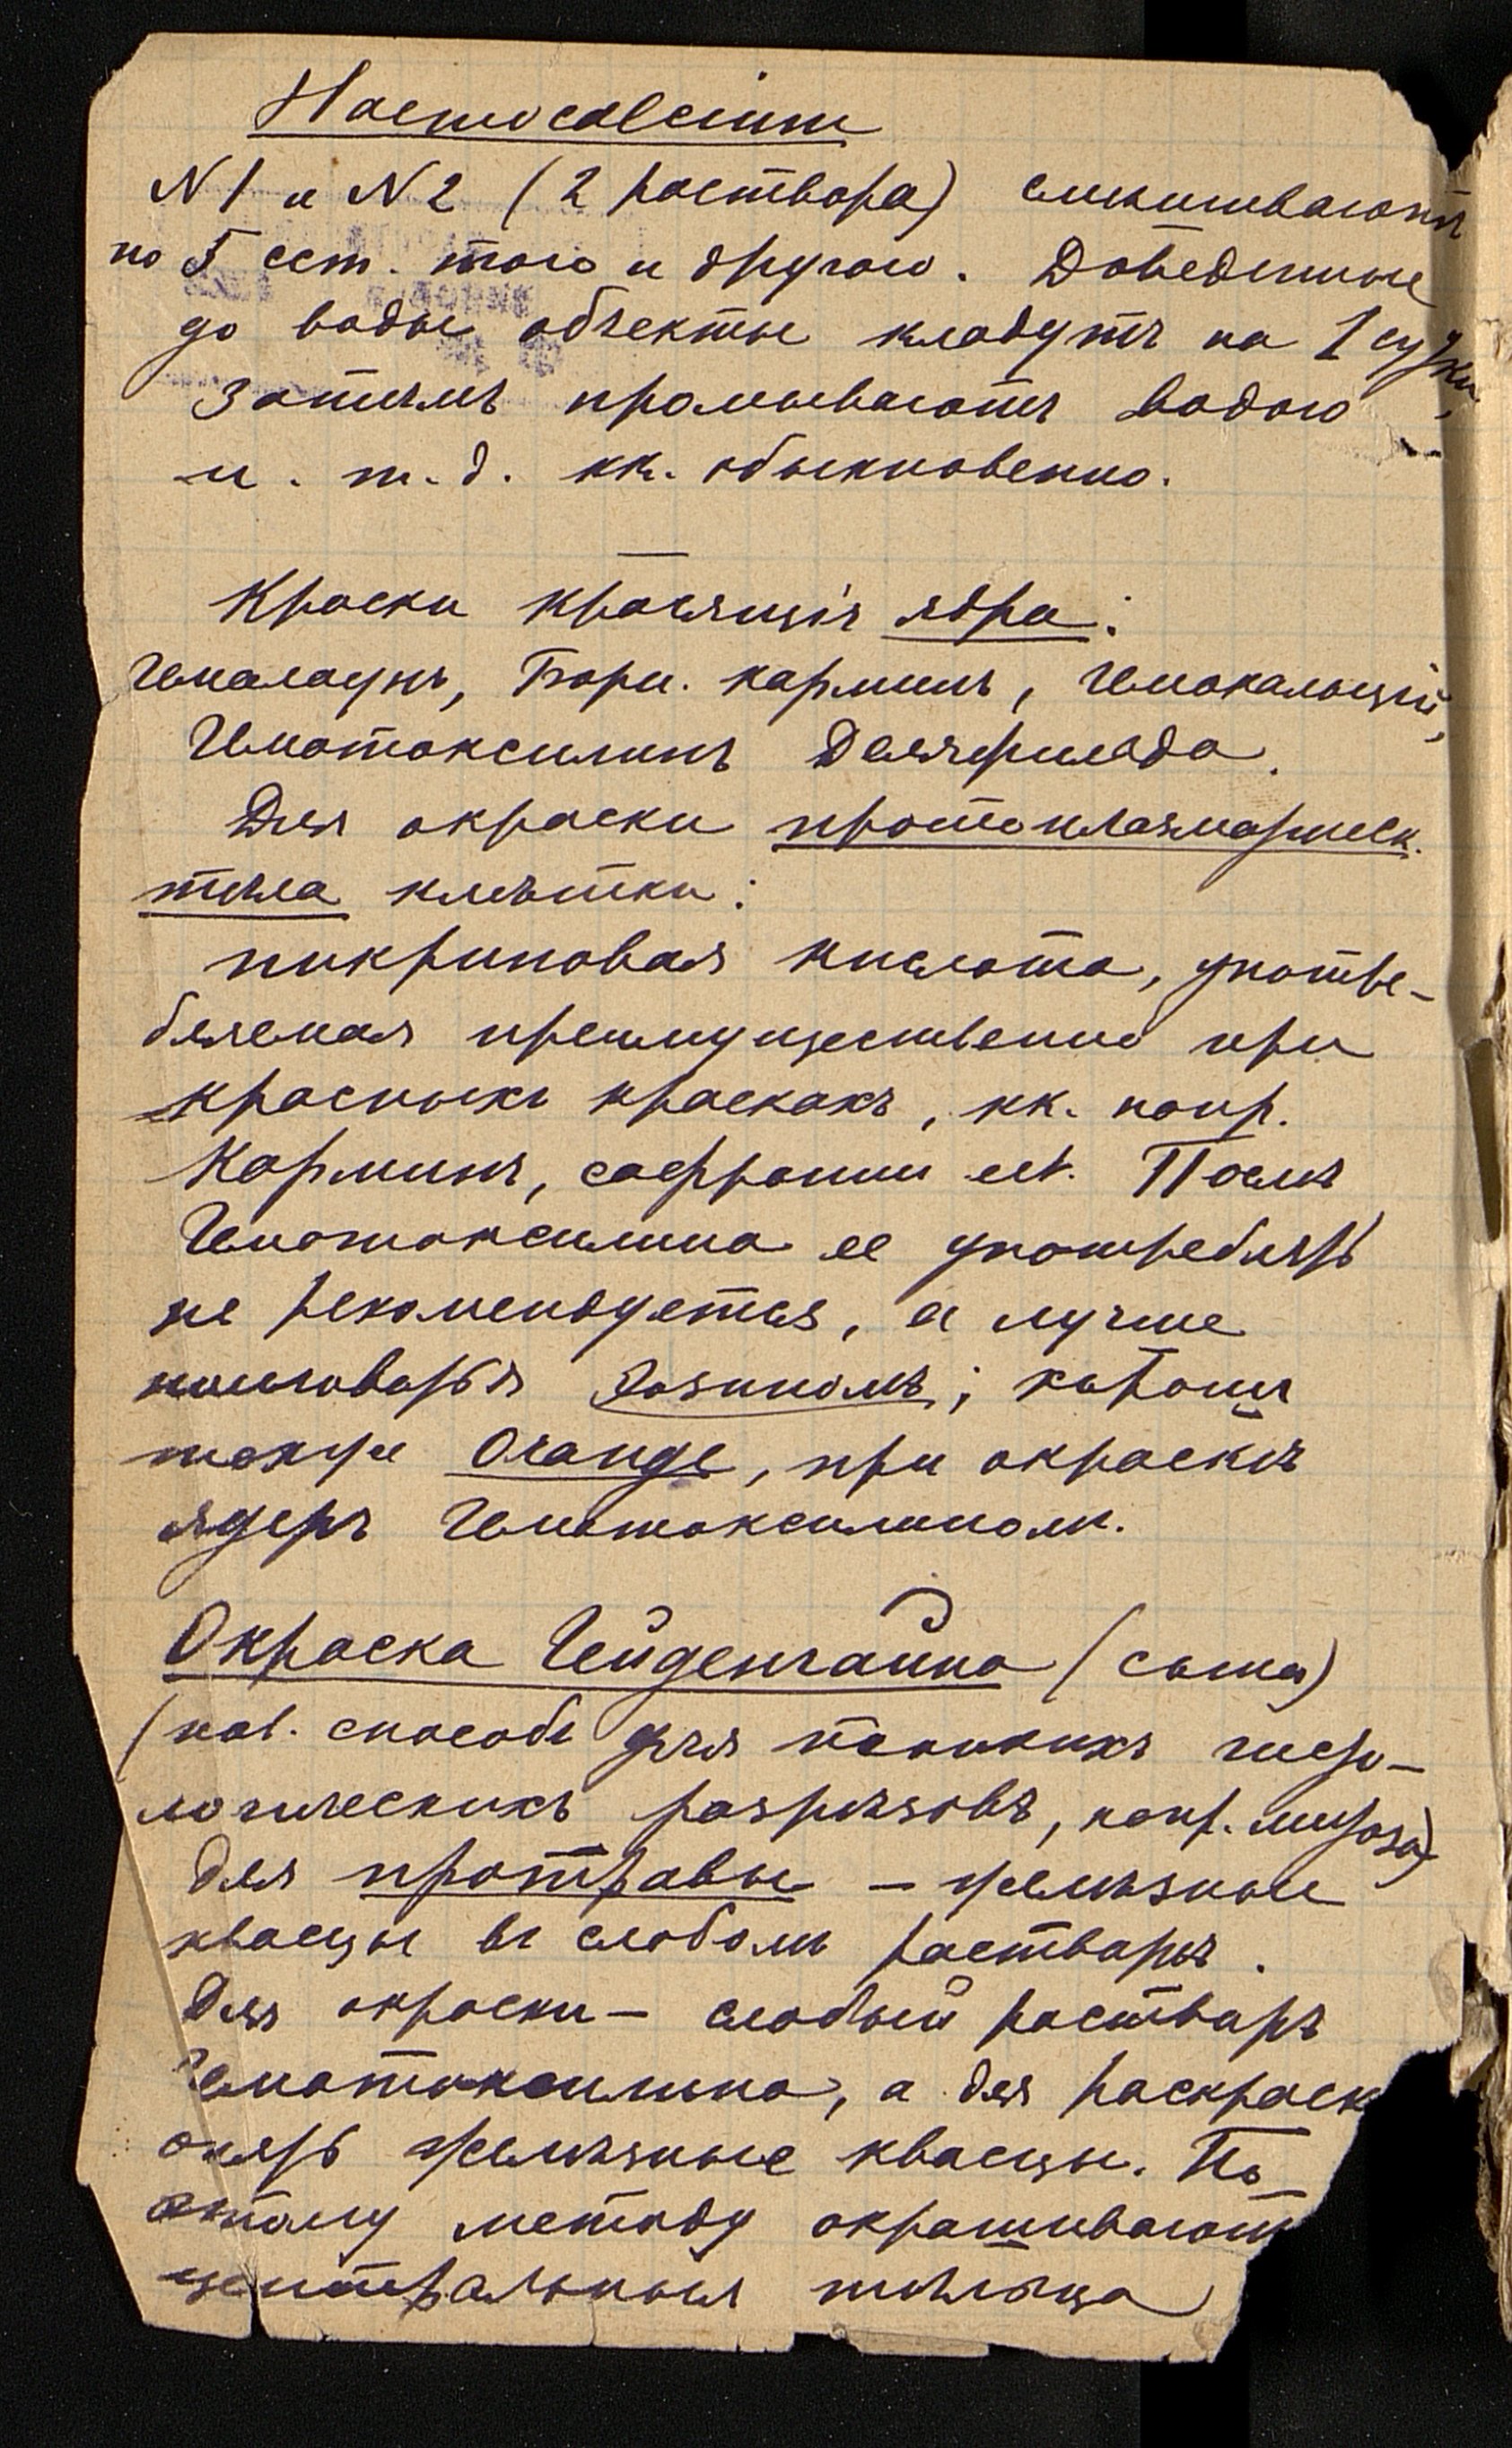 Haemocalcium
N1 и N2 (2 раствора) смешиваютъ
по 5 сст. того и другого. Доведенные
до воды объекты кладутъ на 1 сутки,
Затѣмъ промываютъ водою
и. т. д. кк. обыкновенно.
Краски красящія ядра:
Гемалаунъ, Борн. карминъ, Гемокальцій,
Гематоксилинъ Делафильда.
Для окраски протоплазматическ.
тѣла клѣтки:
пикриновая кислота, употре-
бляемая преимущественно при
красныхъ краскахъ, кк. напр.
Карминъ, сафранин Послѣ
Гематоксилина ее употреблять
не рекомендуется, а лучше
пользоваться Эозиномъ;
также Orange, при окраскѣ
ядеръ Гематоксилином.
Окраска Гейденгайна
(нов. способъ для тонкихъ гисто-
логическихъ разрѣзовъ, напр. митоза)
Для протравы – желѣзные
квасцы въ слабом растворѣ.
Для окраски – слабый растворъ
Гематоксилина, а для раскраск
опять желѣзные квасцы. По
этому методу окрашивают
центральныя тѣльца